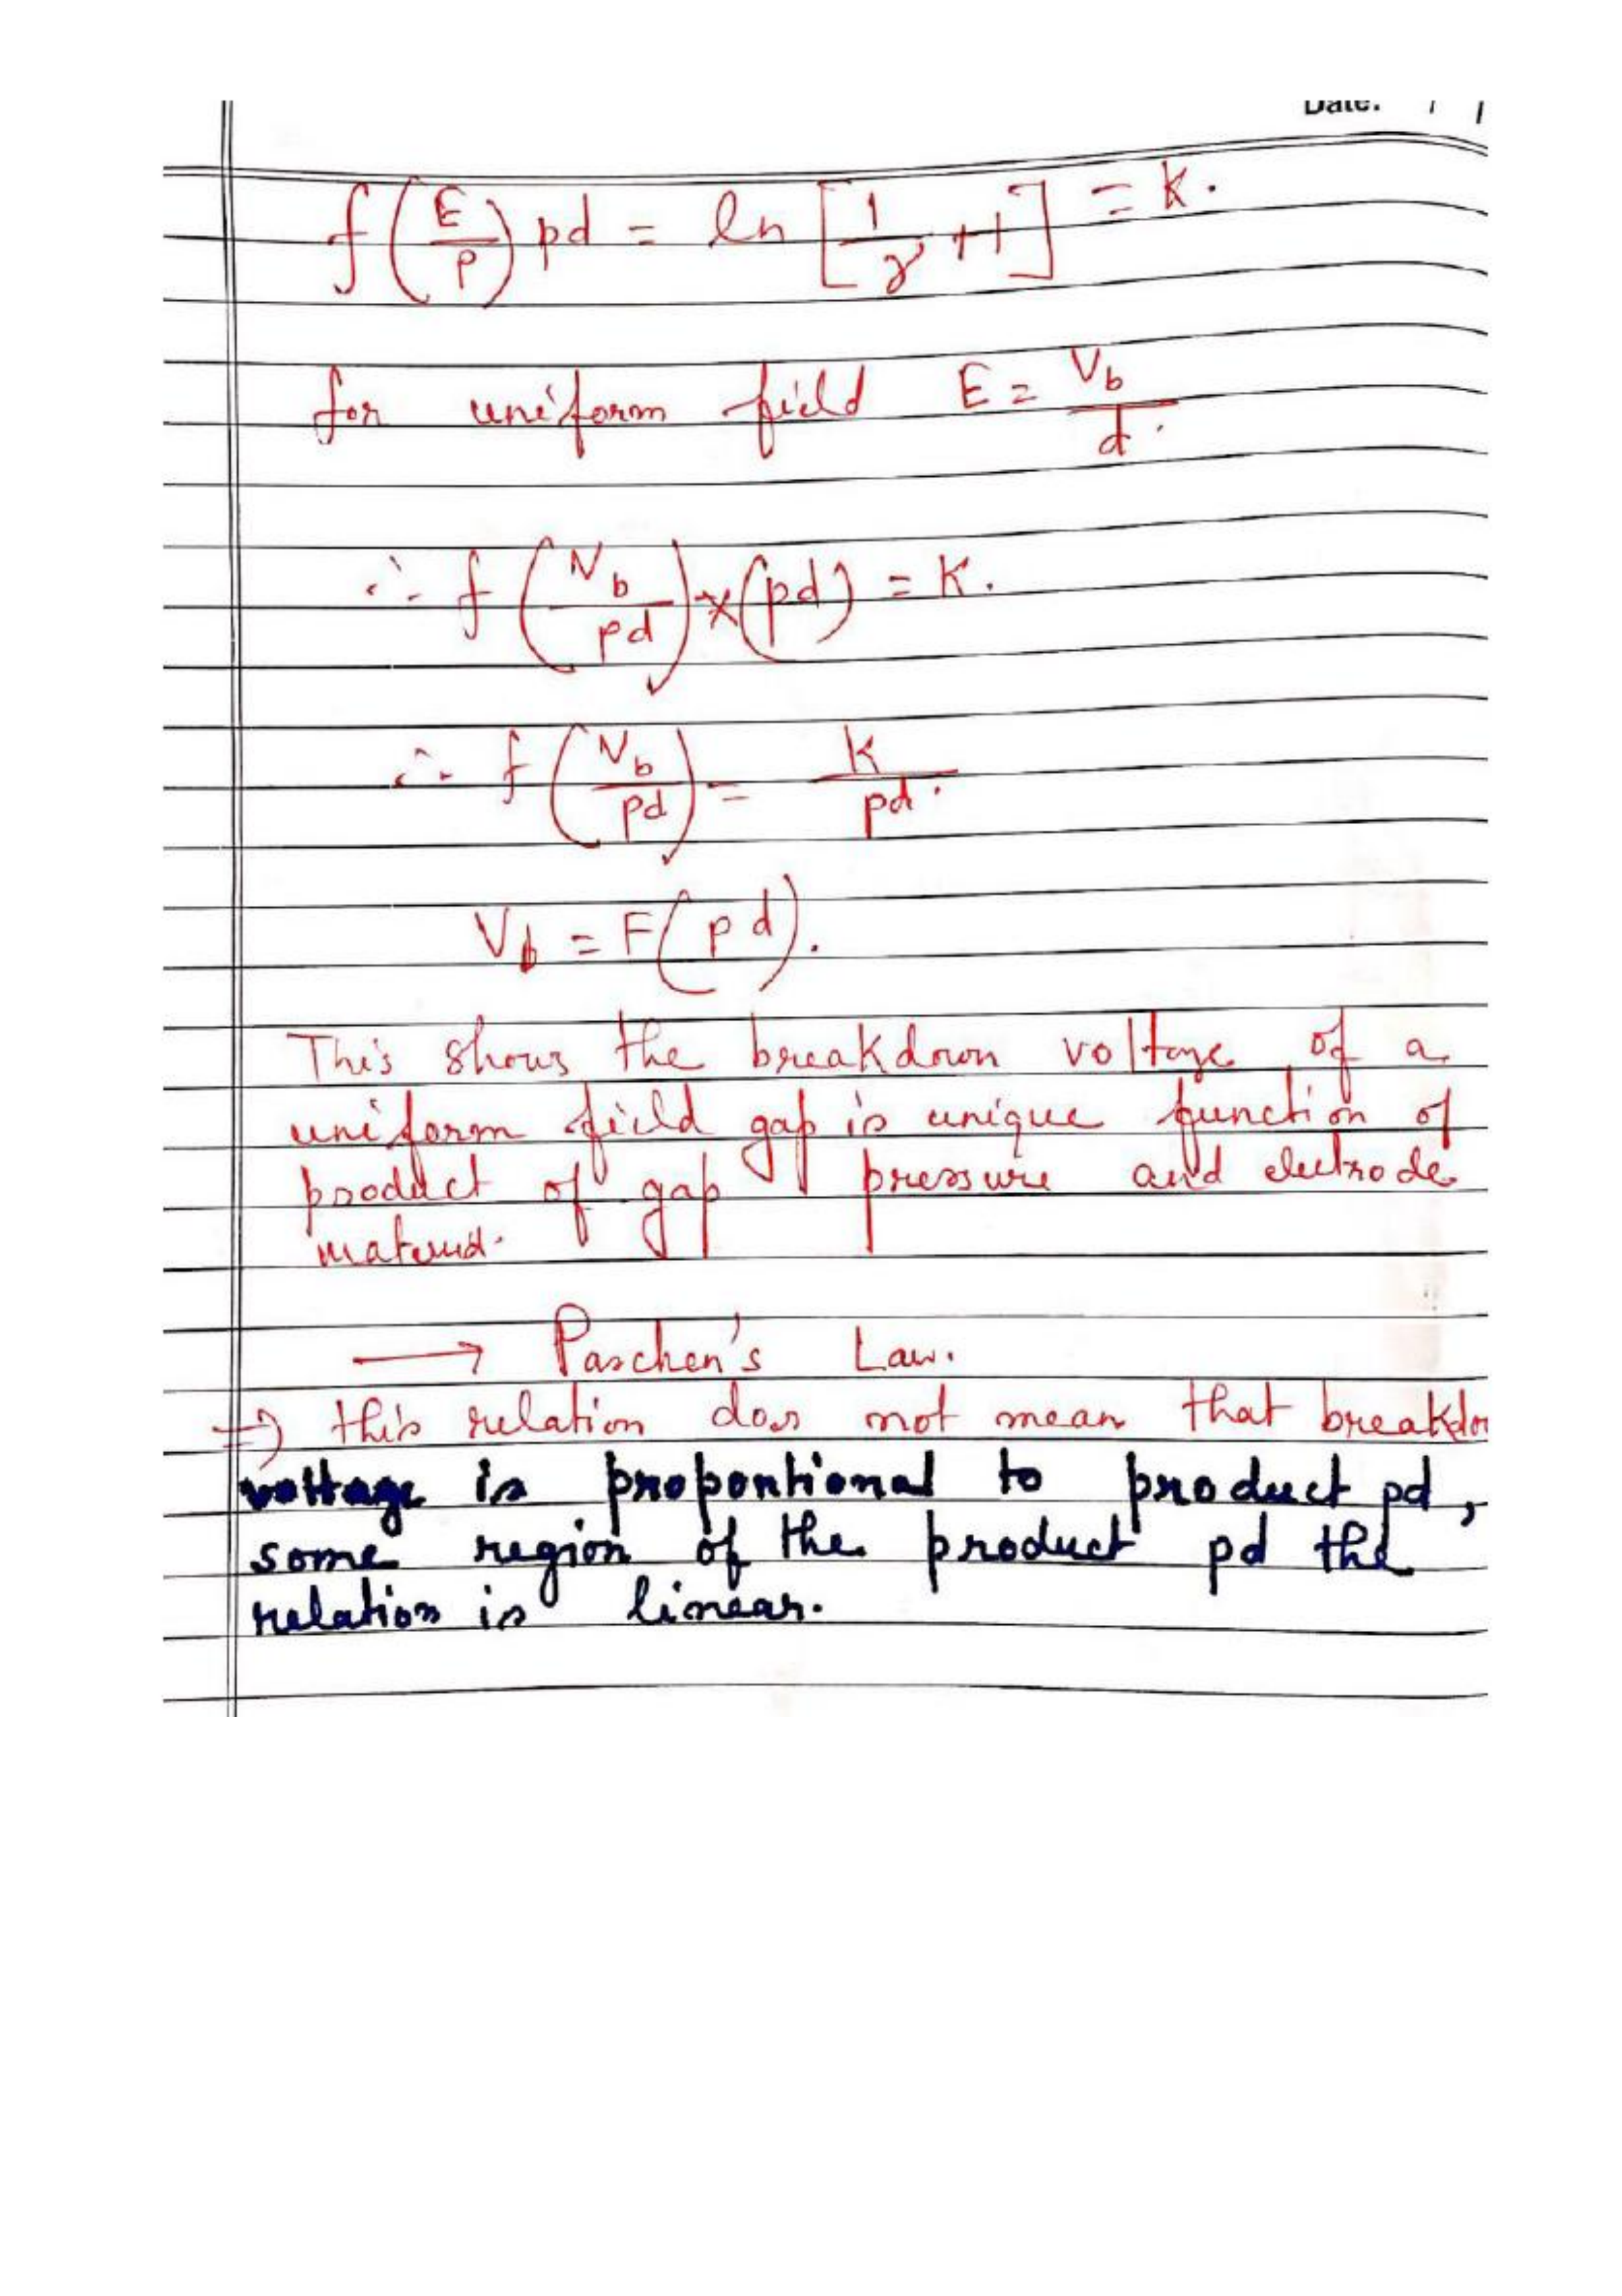 Date: / /
f(E/p) pd = ln [1/γ + 1] = K.
for uniform field E = Vb/d.
∴ f(Vb/pd) × (pd) = K.
∴ f(Vb/pd) = K/pd.
Vb = F(pd).
This shows the breakdown voltage of a
uniform field gap is unique function of
product of gap pressure and electrode
material.
→ Paschen's Law.
⇒ this relation does not mean that breakdo
voltage is proportional to product pd,
some region of the product pd the
relation is linear.